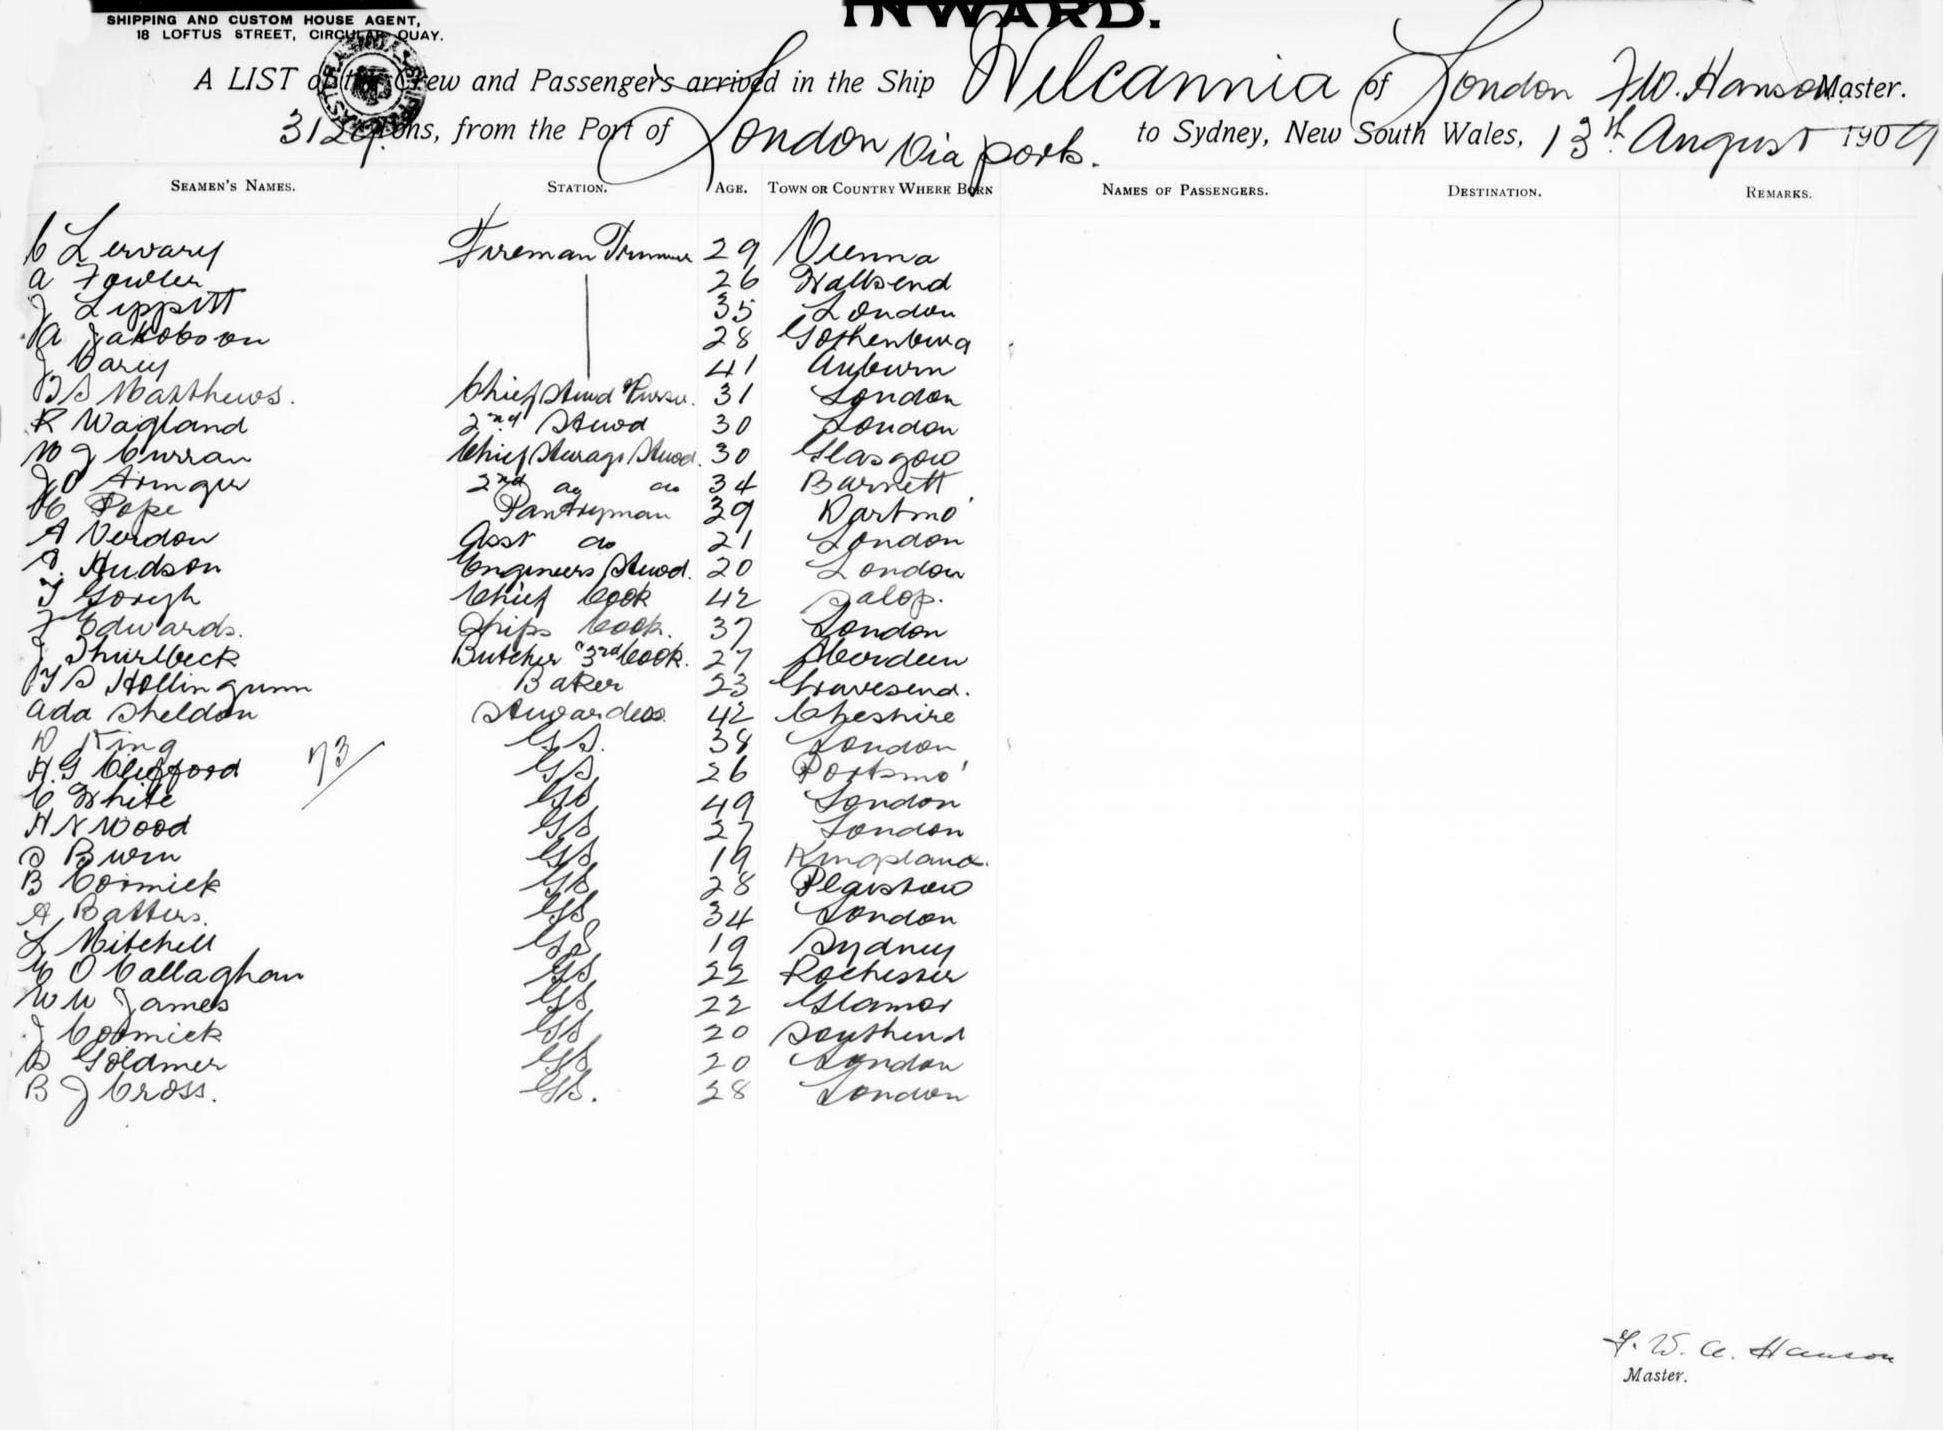 INWARD.
SHIPPING AND CUSTOM HOUSE AGENT,
18 LOFTUS STREET, CIRCULAR QUAY.
A LIST of the Crew and Passengers arrived in the Ship Wilcannia of London F.W. Hanson Master.
3129 Tons, from the Port of London via ports. to Sydney, New South Wales, 13th August 1909
SEAMEN'S NAMES. STATION. AGE. TOWN OR COUNTRY WHERE BORN NAMES OF PASSENGERS. DESTINATION. REMARKS.
C Lervary Fireman Trimmer 29 Vienna
A Fowler 26 Wallsend
J Lippitt 35 London
A Jakobson 28 Gothenburg
J Carey 41 Auburn
B S Matthews. Chief Stewd & Purser. 31 London
R Wagland 2nd Stewd 30 London
W J Curran Chief Steerage Stewd. 30 Glasgow
J O Aringer 2nd do do 34 Barnett
H Pope Pantryman 39 Dartmo'
A Verdon Asst do 21 London
Hudson Engineers Stewd. 20 London
T Gough Chief Cook 42 Salop.
F Edwards. Ships Cook. 37 London
J Thurlbeck Butcher & 3rd Cook. 27 Aberdeen
T S Hollingunn Baker 23 Gravesend.
Ada Sheldon Stewardess 42 Cheshire
D King G.S. 38 London
73
H.G Clifford GS. 26 Portsmo'
C White GS 49 London
H N Wood GS. 27 London
S Burn GS 19 Kingsland.
B Cormick GS 28 Plaistow
A Batters. GS 34 London
L Mitchell GS 19 Sydney
C O Callaghan GS 22 Rochester
W W James GS 22 Glamor
J Cormick GS 20 Southend
S Goldmer GS 20 London
B J Cross. GS. 28 London
F. W. A. Hanson
Master.